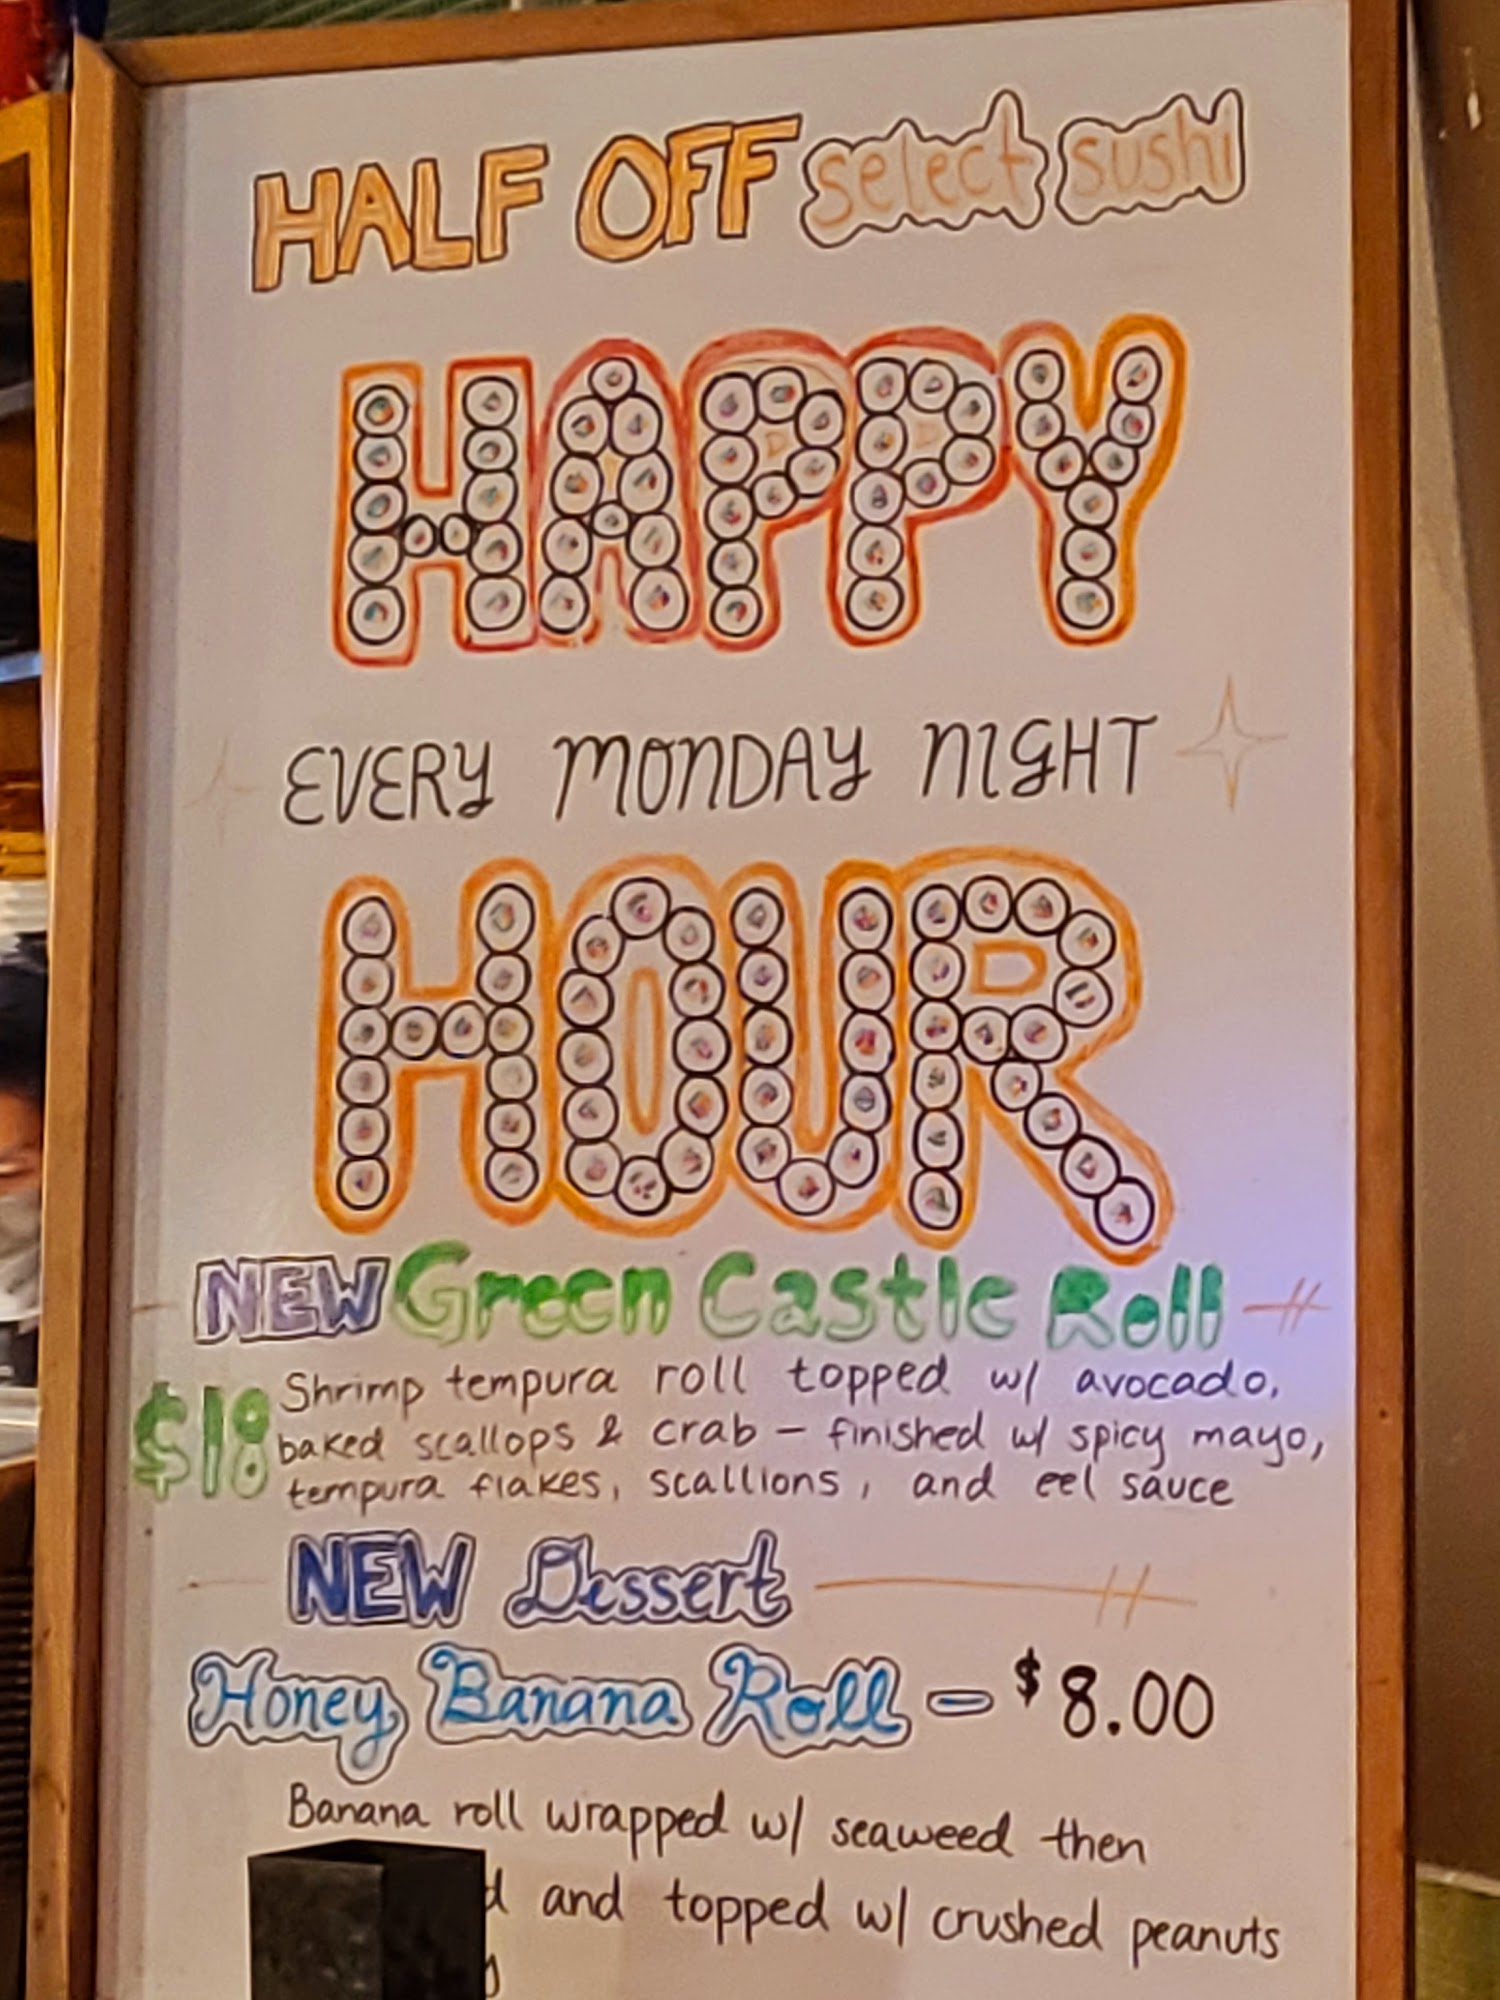 HALF OFF select sushi
HAPPY
EVERY MONDAY NIGHT
HOUR
NEW Green Castle Roll
$18
Shrimp tempura roll topped w/ avocado,
baked scallops & crab - finished w/ spicy mayo,
tempura flakes, scallions, and eel sauce
NEW Dessert
Honey Banana Roll - $8.00
Banana roll wrapped w/ seaweed then
and topped w/ crushed peanuts